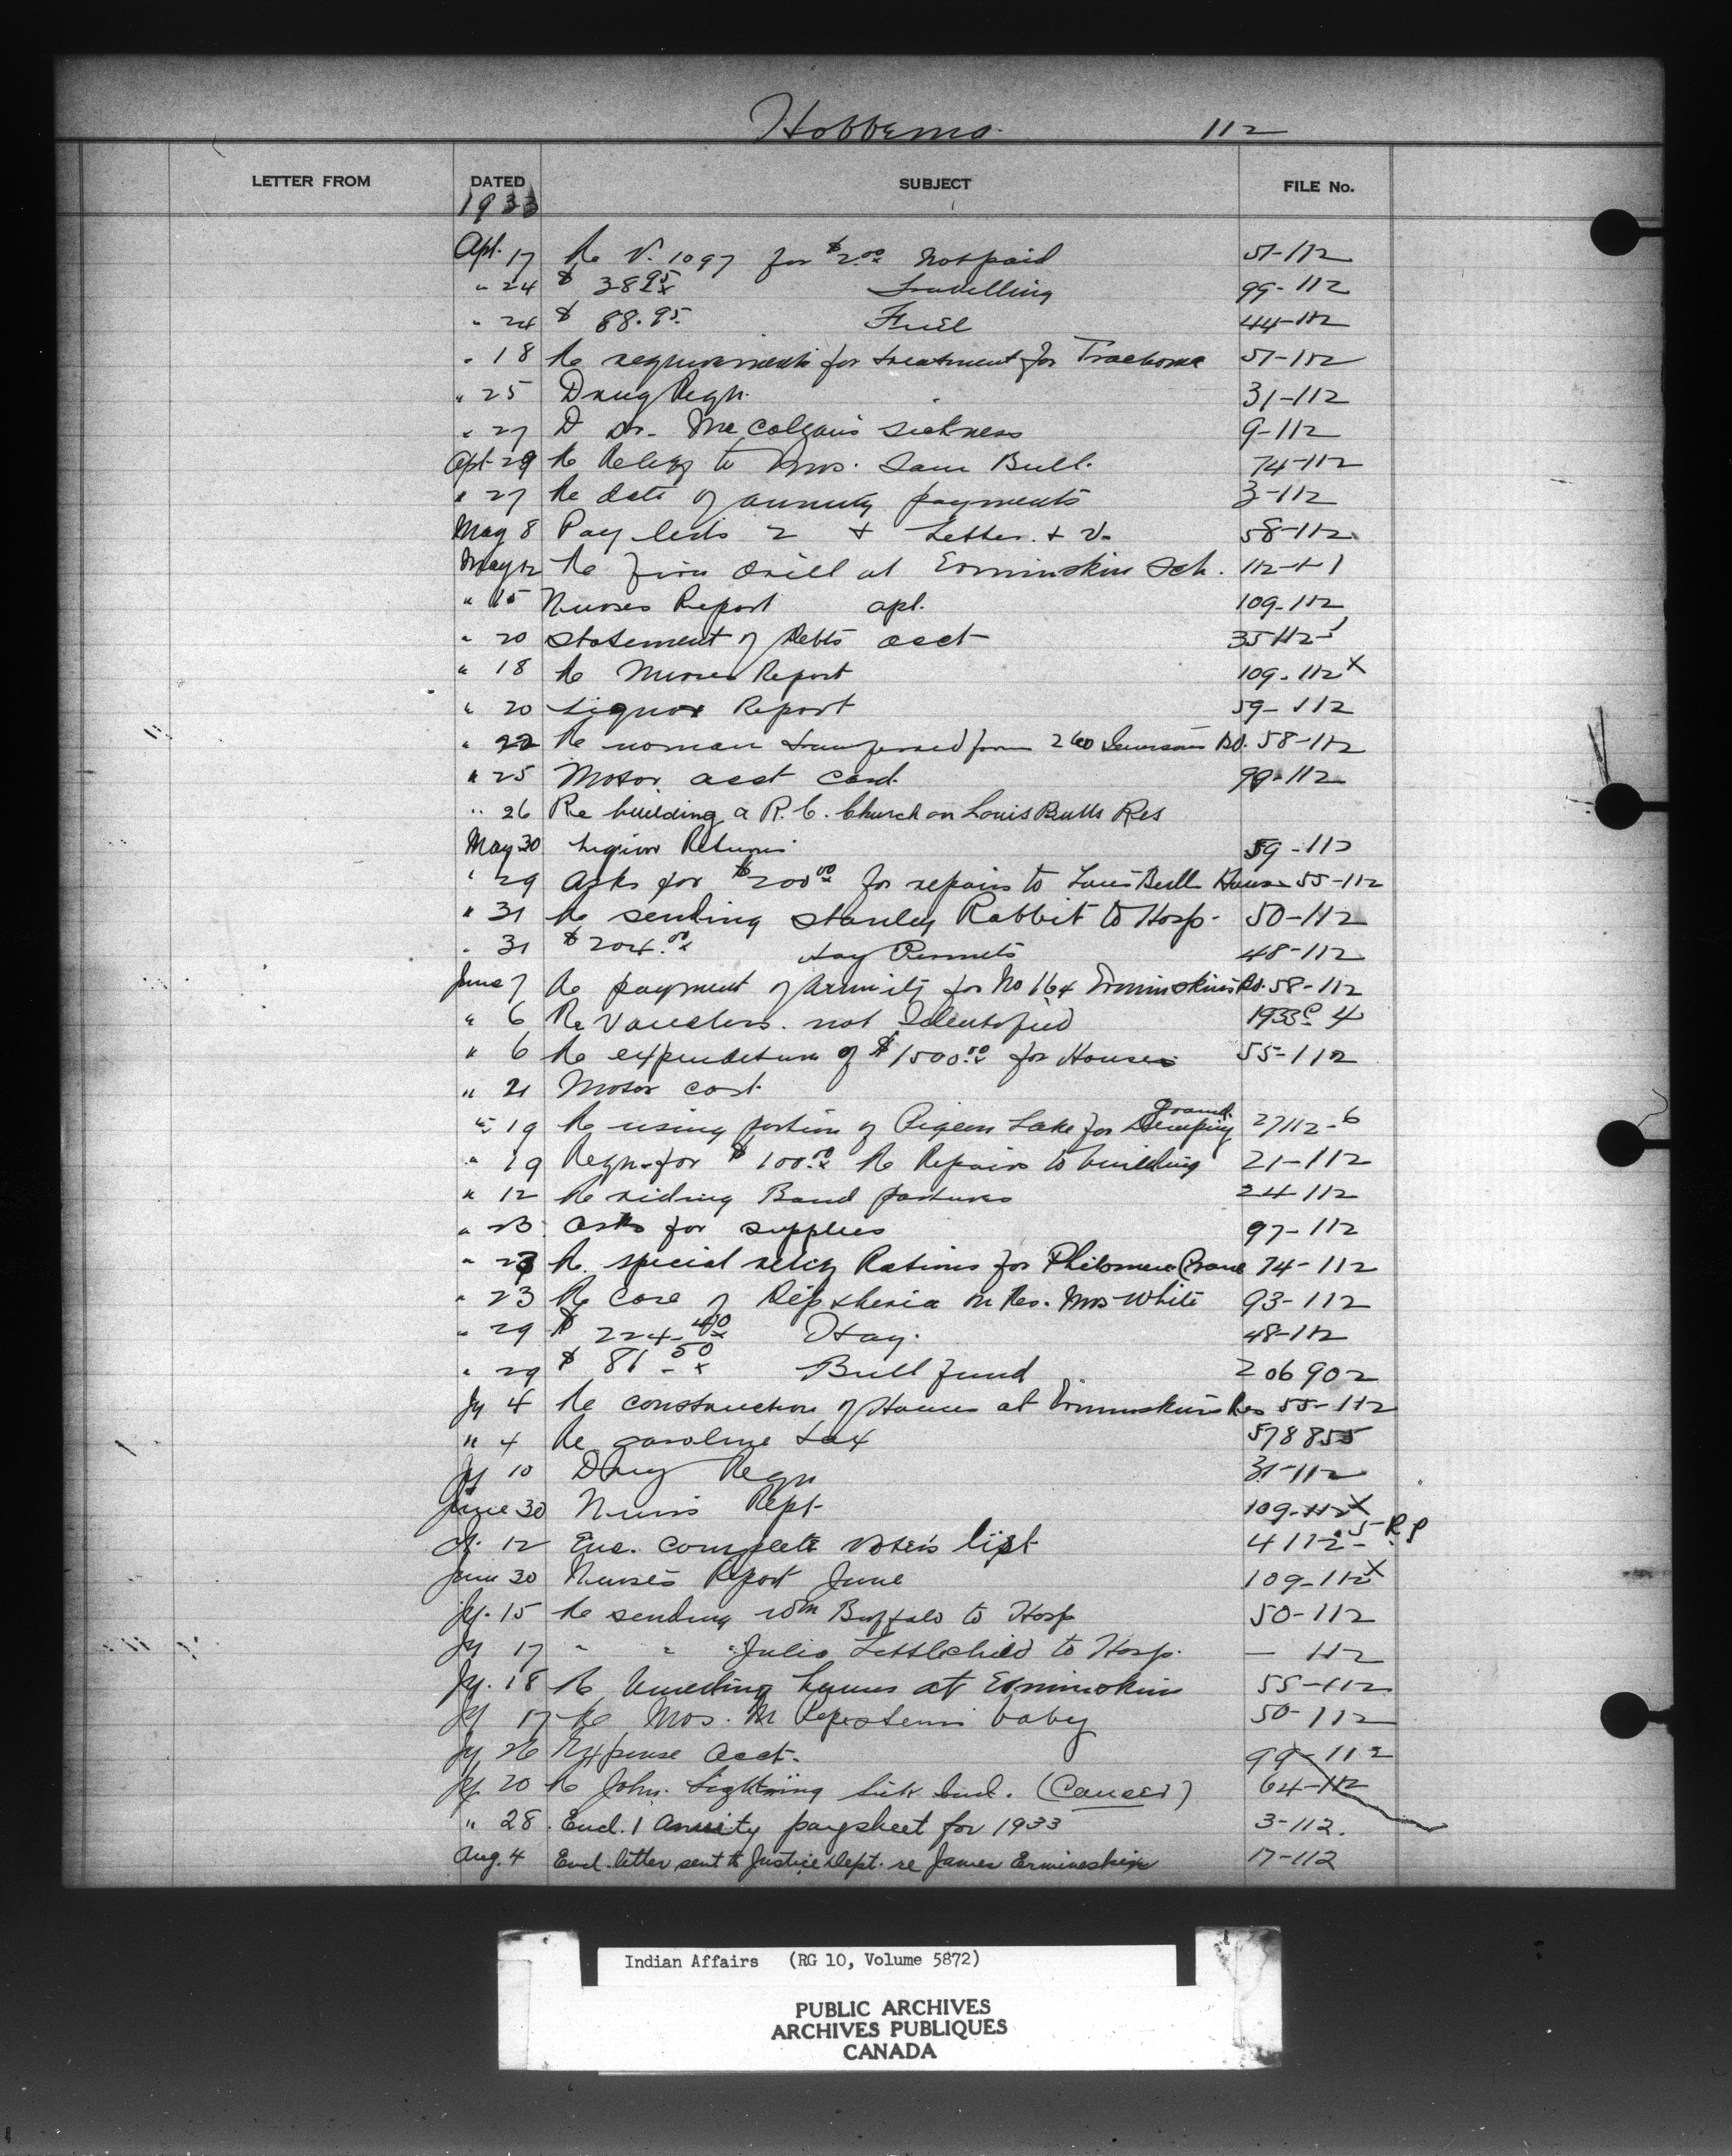 Hobbema. 112
LETTER FROM DATED SUBJECT FILE No.
1933
Apl. 17 Re V. 1097 for $2.00 Not paid 51-112
" 24 $ 382.95 Travelling 99-112
" 24 $ 88.95 Fuel 44-112
" 18 Re requirements for treatment for Trachoma 51-112
" 25 Drug Reqn. 31-112
" 27 Dr. McColgan's sickness 9-112
Apl 29 Re Relief to Mrs. Sam Bull. 74-112
" 27 Re date of annuity payments 3-112
May 8 Pay lists 2 + Letter + V. 58-112
May 12 Re fire drill at Ermineskin Sch. 112-+1
" 15 Nurses Report apl. 109-112
" 20 Statement of Debts acct 35112-1
" 18 Re Nurses Report 109-112x
" 20 Liquor Report 59-112
" 22 Re woman transferred from 260 Samson's Bd. 58-112
" 25 Motor acct card. 99-112
" 26 Re building a R.C. Church on Louis Bulls Res
May 30 Liquor Returns 59-112
" 29 Asks for $200.00 for repairs to Louis Bull House 55-112
" 31 Re sending Stanley Rabbit to Hosp. 50-112
" 31 $204.00 Hay Permits 48-112
June 7 Re payment of Annuity for No 164 Ermineskin's Bd. 58-112
" 6 Re Vouchers. not Identified 1933c 4
" 6 Re expenditure of $1500.00 for Houses 55-112
" 21 Motor cost.
" 19 Re using portion of Pigeon Lake for Camping ground 27112-6
" 19 Reqn. for $100.00 Re Repairs to building 21-112
" 12 Re riding Band pastures 24-112
" 23 asks for supplies 97-112
" 23 Re special relief Rations for Philomene Crane 74-112
" 23 Re Case of Diptheria on Res. Mrs White 93-112
" 29 $ 224.40 Hay. 48-112
" 29 $ 81.50 Bull fund 206902
Jy 4 Re construction of Houses at Ermineskin's Res 55-112
" 4 Re gasoline tax 578855
Jy 10 Drug Reqn 31-112
June 30 Nurses Rept 109-112x
Jy. 12 Enc. complete voters list 4112-5 R.P
June 30 Nurse's Report June 109-112x
Jy. 15 Re sending Wm Buffalo to Hosp 50-112
Jy 17 " " " Julia Littlechild to Hosp. — 112
Jy. 18 Re houses at Ermineskin 55-112
Jy 17 Re Mrs. M baby 50-112
Jy 26 Expense Acct. 99-112
Jy 20 Re John Lightning Sick Ind. (Cancer) 64-112
" 28. Encl. 1 Annuity paysheet for 1933 3-112.
Aug. 4 Encl. letter sent to Justice Dept. re James Ermineskin 17-112
Indian Affairs (RG 10, Volume 5872)
PUBLIC ARCHIVES
ARCHIVES PUBLIQUES
CANADA